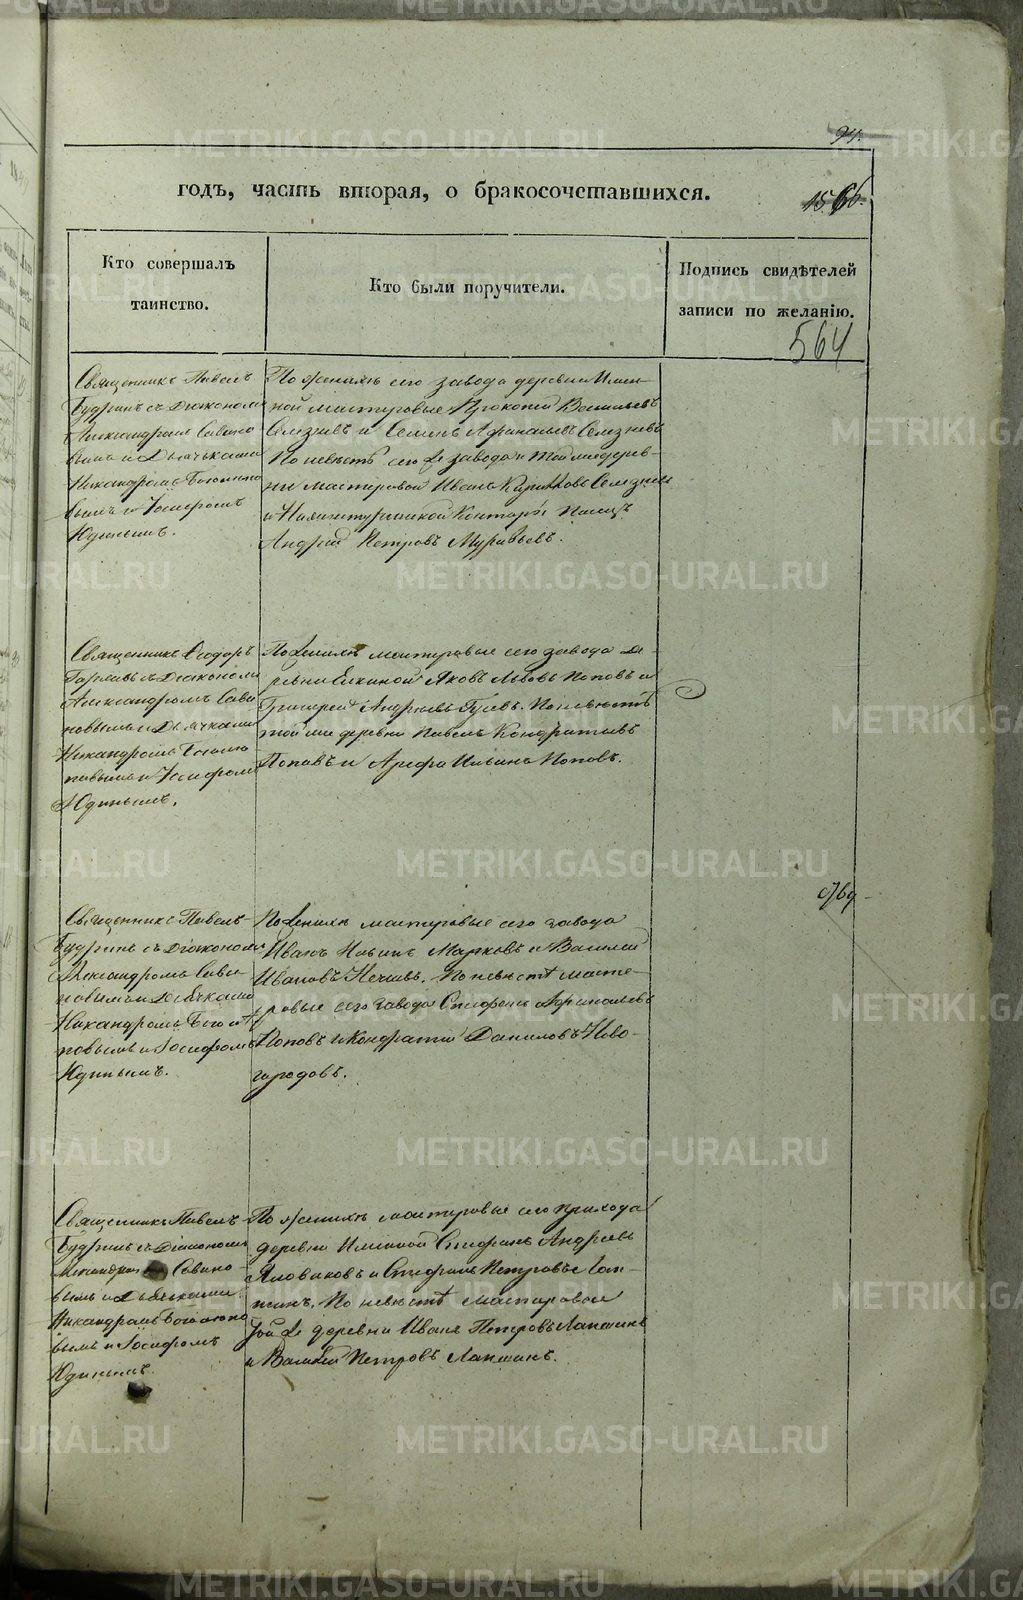 годъ, часть вторая, о бракосочетавшихся.
Кто совершалъ
таинство.
Кто были поручители.
Подпись свидѣтелей
записи по желанію.
564
Священникъ Павелъ
Будринъ съ Дiакономъ
Александромъ Савино
вымъ и Дьячками
Никандромъ
вымъ и Iосифомъ
Юдинымъ.
По женихѣ сего завода деревни Имен-
ной мастеровые Прокопей Васильевъ
Селезневъ и Семенъ Афанасьевъ Селезневъ
По невѣстѣ сего же завода и той же дерев-
ни мастеровой Иванъ Селезневъ
и Нижнетуринской Конторы Писецъ
Андрей Петровъ Муравьевъ.
Священникъ Ѳеодоръ
съ Дiакономъ
Александромъ Сави
новымъ и Дьячками
Никандромъ
повымъ и Iосифомъ
Юдинымъ.
По женихѣ мастеровые сего завода де-
ревни Елкиной Яковъ Львовъ Поповъ и
Григорей Андреевъ Гусевъ. По невѣстѣ
той же деревни Павелъ Кондратьевъ
Поповъ и Арефа Ильинъ Поповъ.
Священникъ Павелъ
Будринъ съ Дiакономъ
Александромъ Сави
новымъ и Дьячками
Никандромъ
повымъ и Iосифомъ
Юдинымъ.
По женихѣ мастеровые сего завода
Иванъ Ильинъ Марковъ и Василей
Ивановъ Нечаевъ. По невѣстѣ масте-
ровые сего завода Стефанъ Афанасьевъ
Поповъ и Кондратей Даниловъ Ново-
городовъ.
Священникъ Павелъ
Будринъ съ Дiакономъ
Александромъ Савино-
вымъ и Дьячками
Никандромъ
вымъ и Iосифомъ
Юдинымъ.
По женихѣ мастеровые сего прихода
деревни Именной Стефанъ Андреевъ
и Стефанъ Петровъ Лап-
шинъ. По невѣстѣ мастеровые
той же деревни Иванъ Петровъ Лапшинъ
и Василей Петровъ Лапшинъ.
METRIKI.GASO-URAL.RU